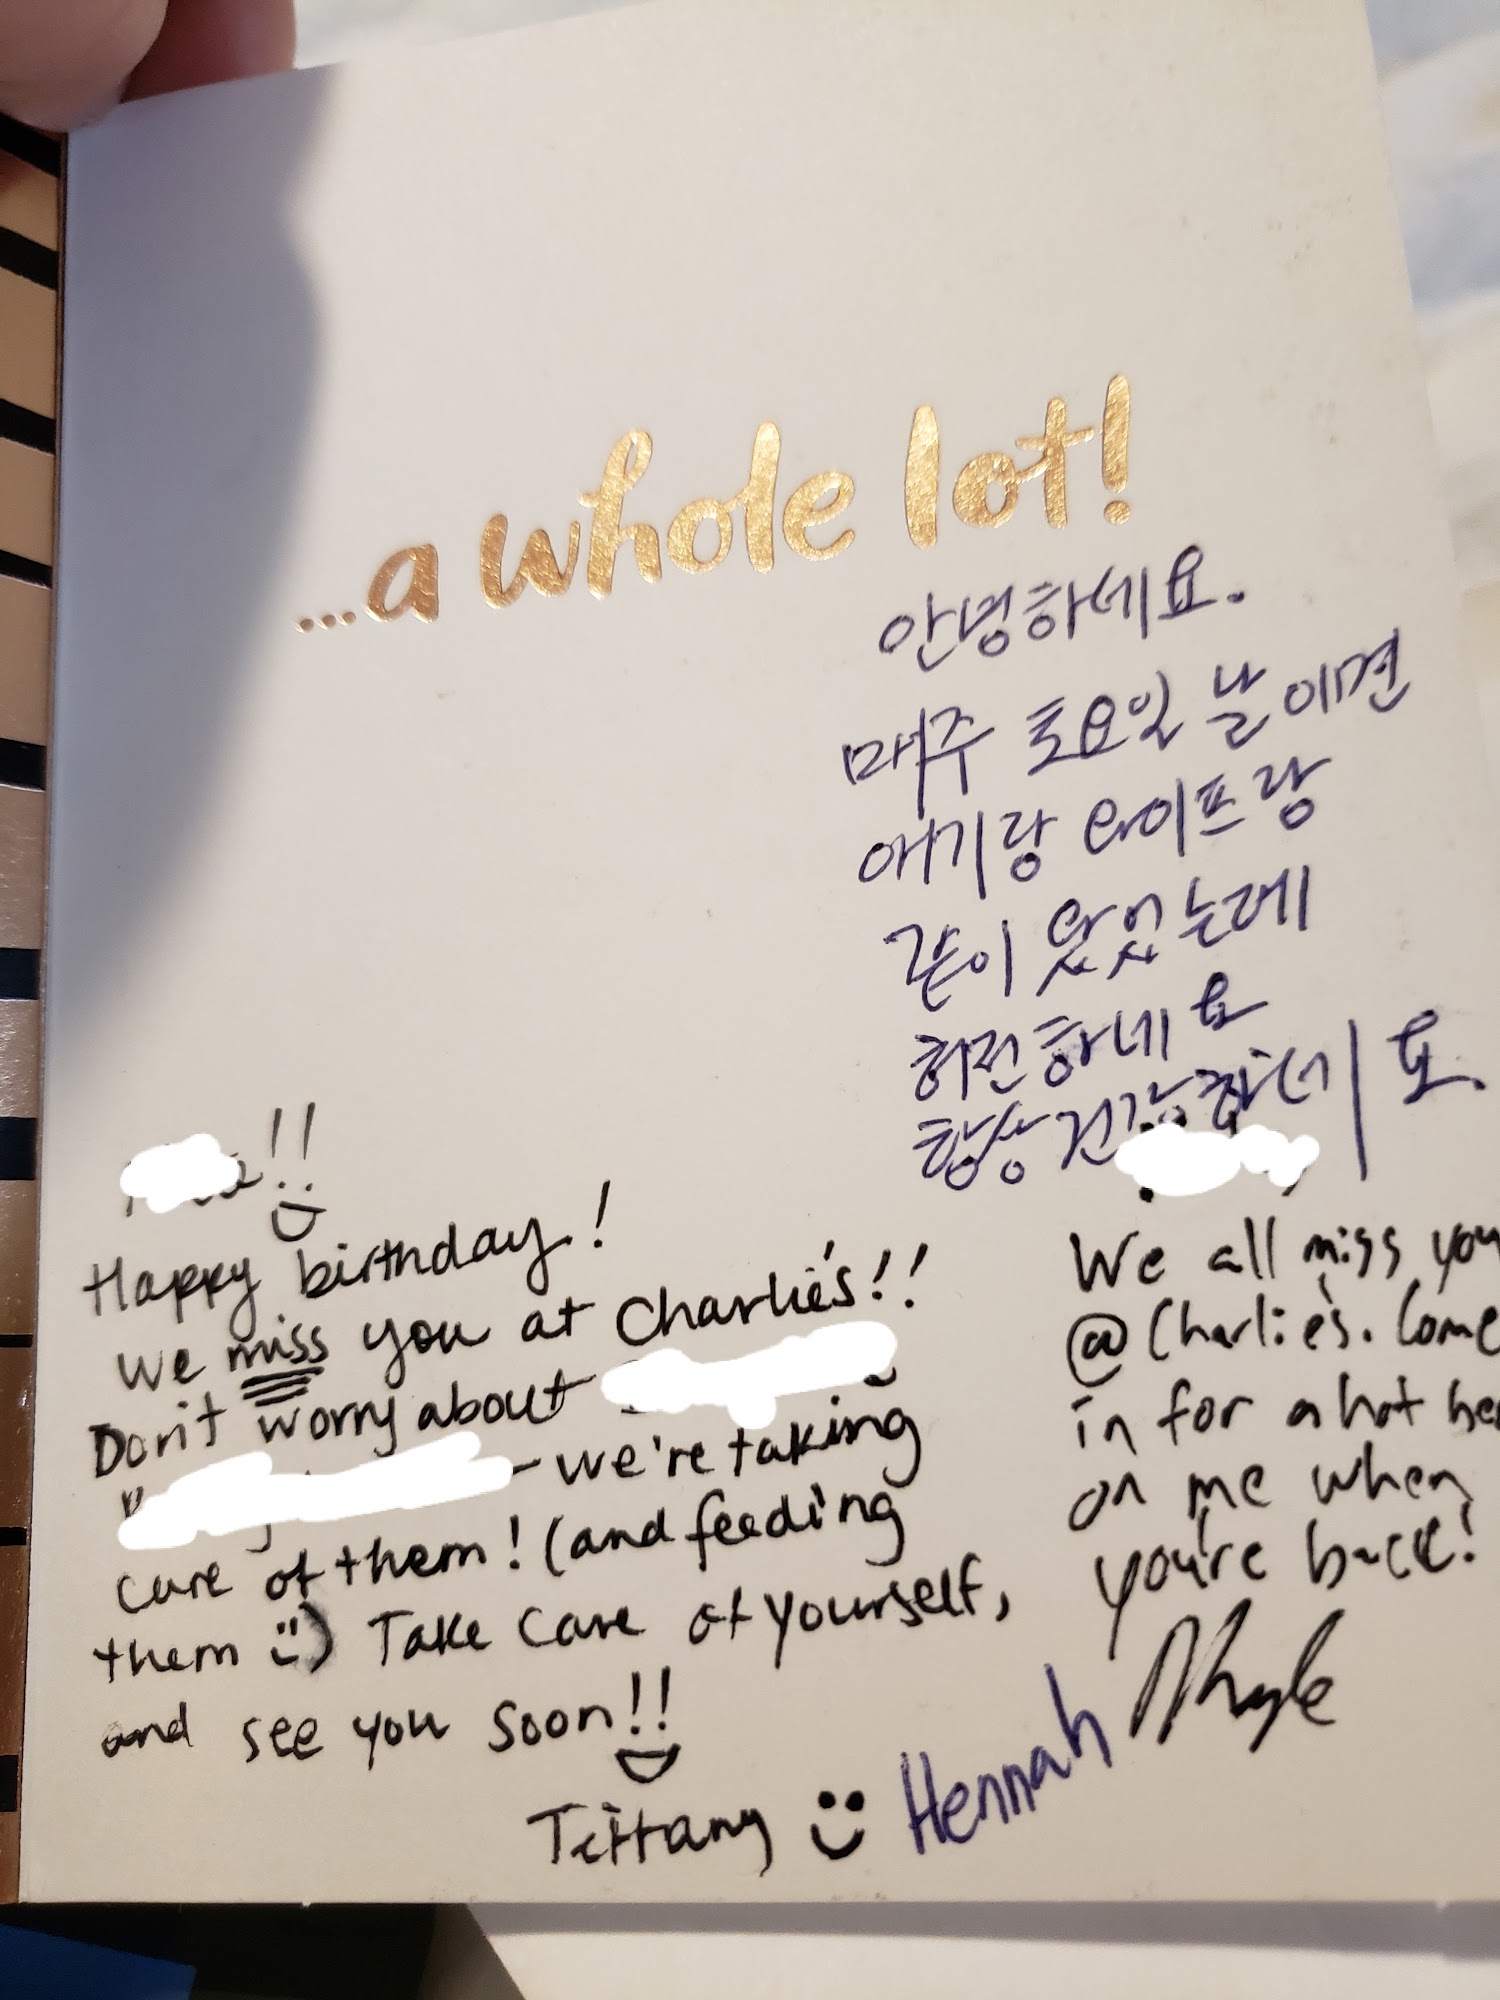 ...a whole lot!
안녕하세요.
매주 토요일 날이면
애기랑 와이프랑
같이 왔었는데
허전하네요
항상 건강하세요.
!!
Happy birthday!
We miss you at Charlie's!!
Don't worry about
- we're taking
care of them! (and feeding
them :) Take care of yourself,
and see you soon!!
Tiffany
Hennah
We all miss you
@Charlie's. Come
in for a hot
on me when
you're back!